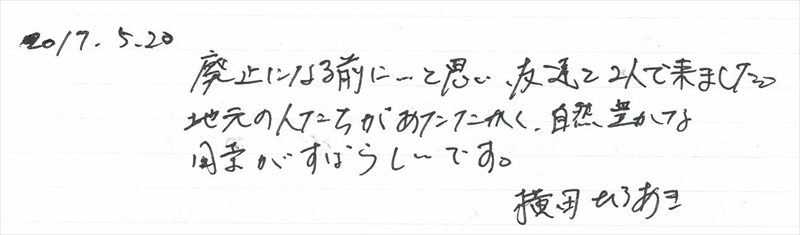 2017.5.20
廃止になる前に…と思い、友達と2人で来ました。
地元の人たちがあたたかく、自然豊かな
風景がすばらしいです。
横田ひろあき